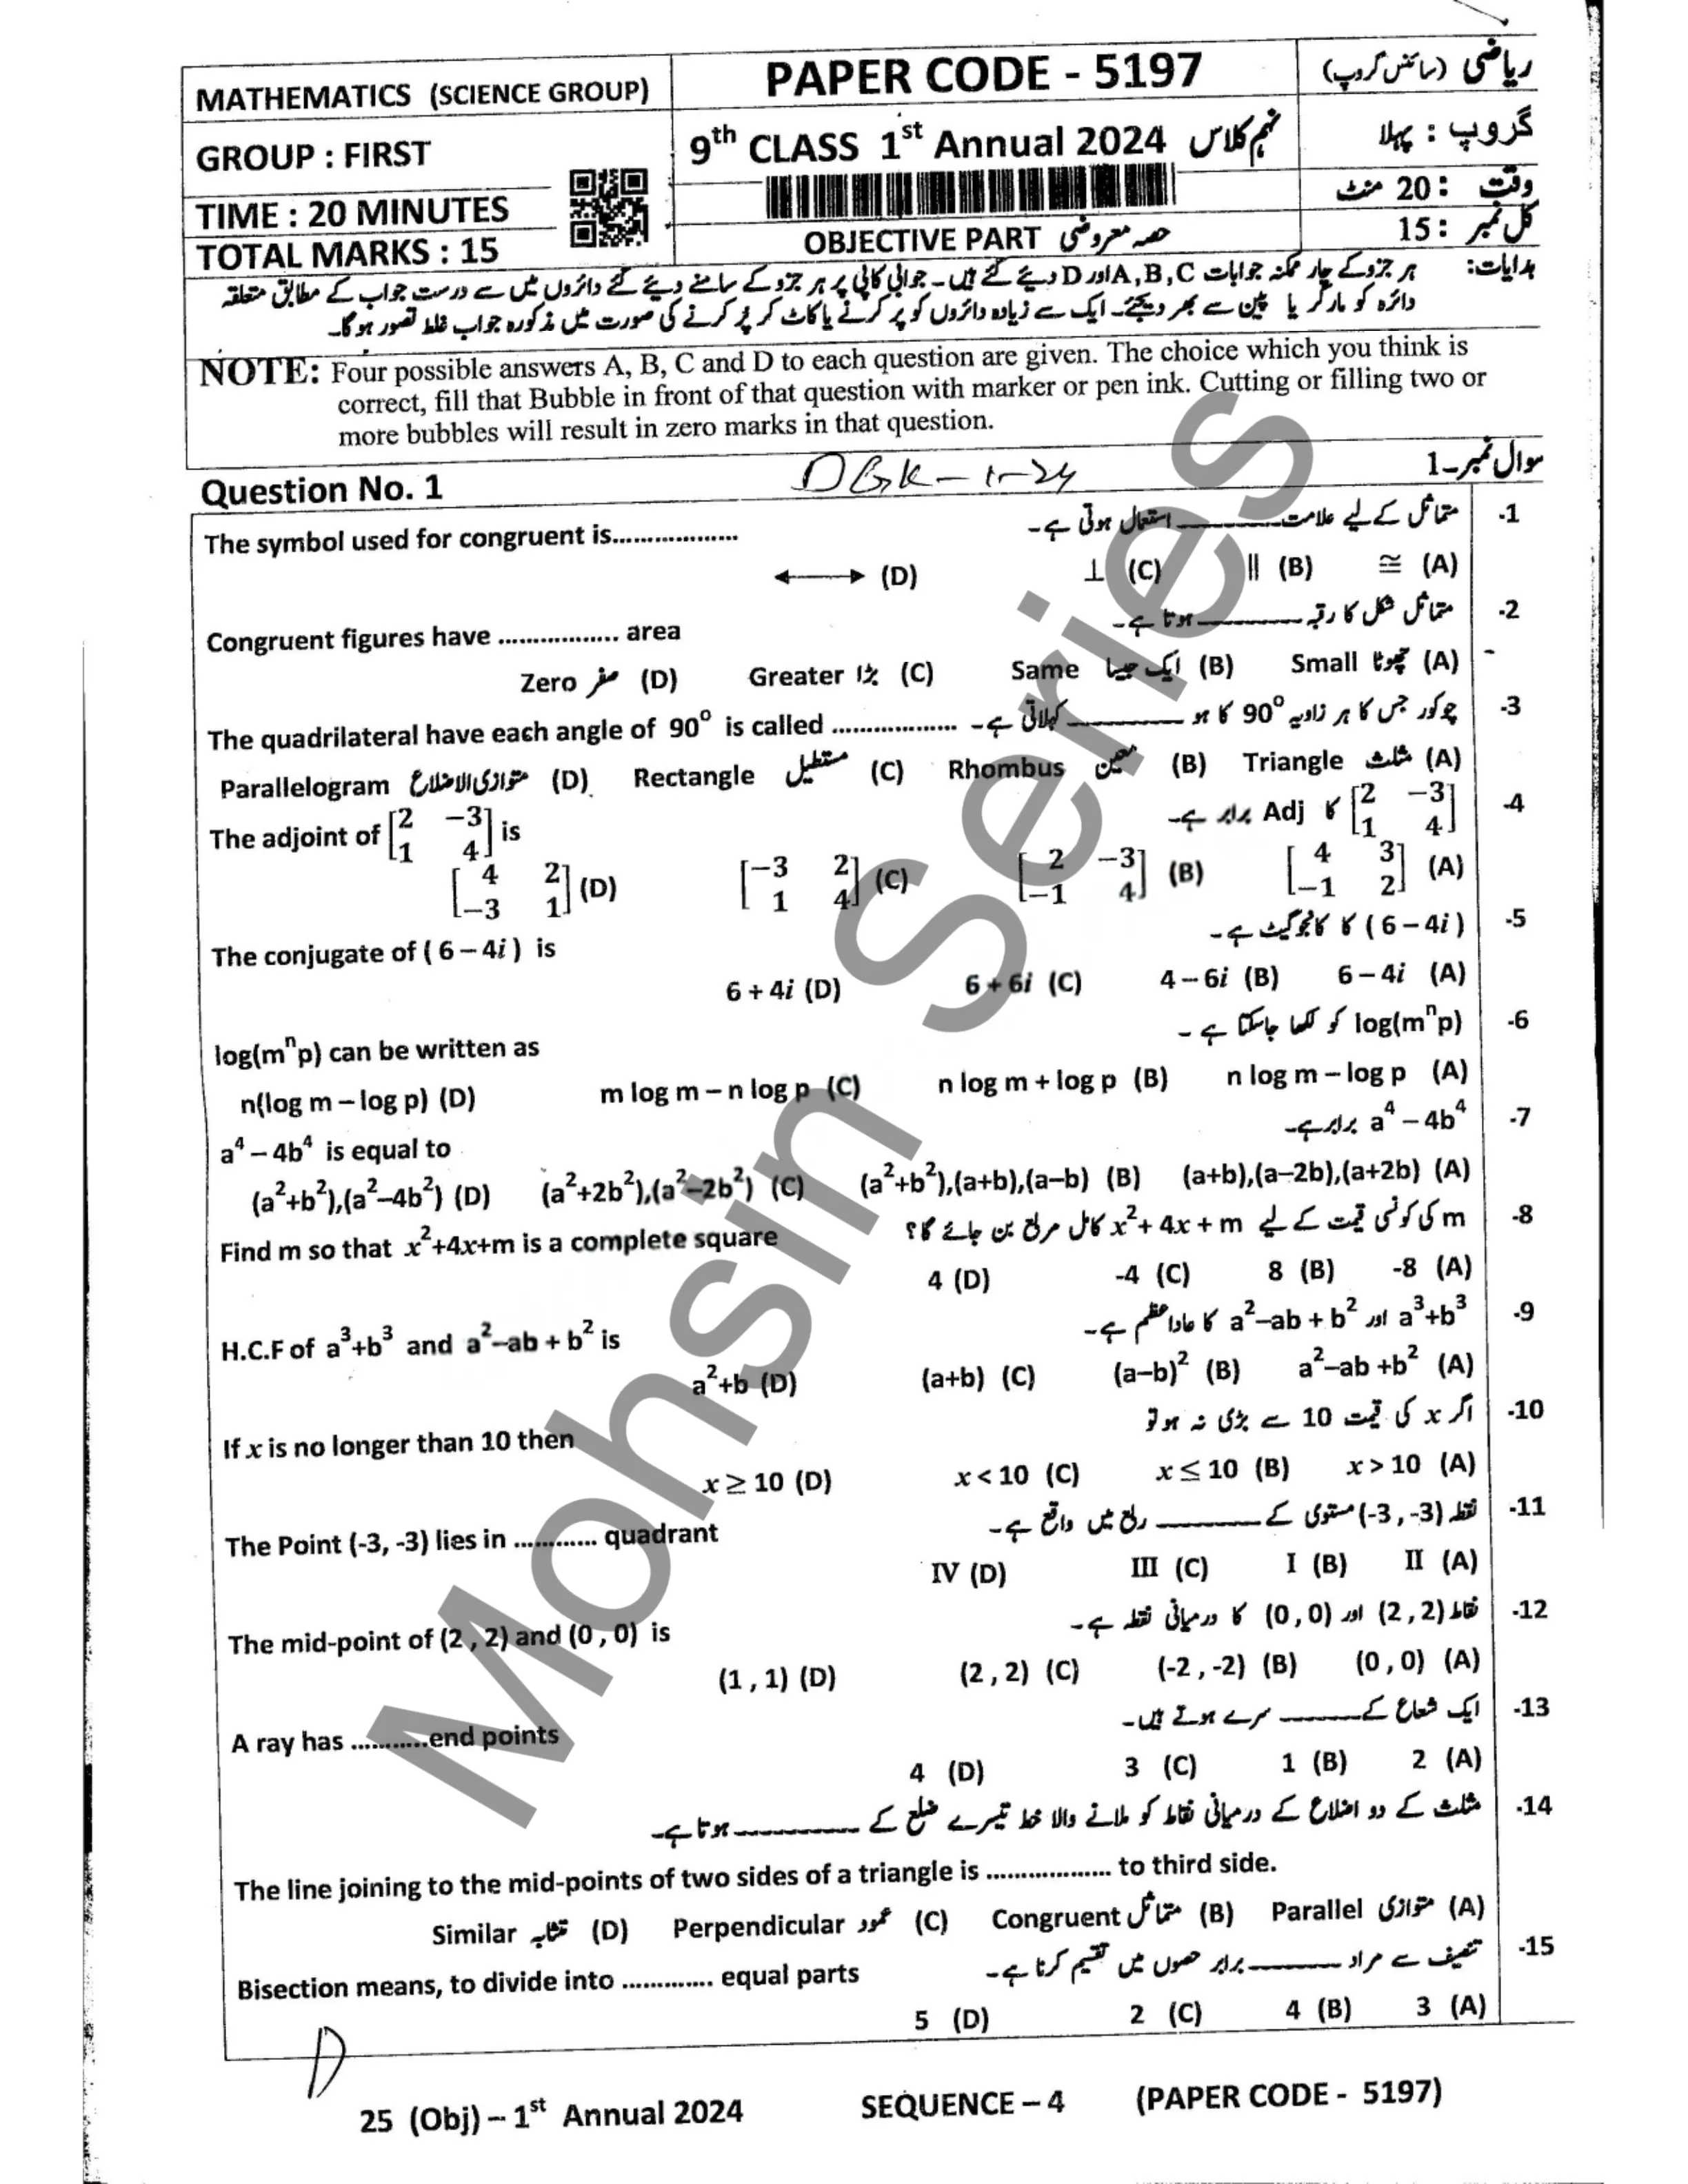 MATHEMATICS (SCIENCE GROUP)
PAPER CODE - 5197
ریاضی (سائنس گروپ)
GROUP : FIRST
9th CLASS 1st Annual 2024 نہم کلاس
گروپ : پہلا
TIME : 20 MINUTES
وقت : 20 منٹ
TOTAL MARKS : 15
OBJECTIVE PART حصہ معروضی
کل نمبر : 15
ہدایات: ہر جزو کے چار ممکنہ جوابات A,B,C اور D دیئے گئے ہیں۔ جوابی کاپی پر ہر جزو کے سامنے دیئے گئے دائروں میں سے درست جواب کے مطابق متعلقہ
دائرہ کو مارکر یا پین سے بھر دیجئے۔ ایک سے زیادہ دائروں کو پر کرنے یا کاٹ کر پر کرنے کی صورت میں مذکورہ جواب غلط تصور ہوگا۔
NOTE: Four possible answers A, B, C and D to each question are given. The choice which you think is
correct, fill that Bubble in front of that question with marker or pen ink. Cutting or filling two or
more bubbles will result in zero marks in that question.
Question No. 1
DGK-1-24
سوال نمبر۔1
-1 متماثل کے لیے علامت ________ استعمال ہوتی ہے۔
The symbol used for congruent is..................
←→ (D) ⊥ (C) ∥ (B) ≅ (A)
-2 متماثل شکل کا رقبہ ________ ہوتا ہے۔
Congruent figures have ................. area
Zero صفر (D) Greater بڑا (C) Same ایک جیسا (B) Small چھوٹا (A)
-3 چوکور جس کا ہر زاویہ 90° کا ہو ________ کہلاتی ہے۔
The quadrilateral have each angle of 90° is called ..................
Parallelogram متوازی الاضلاع (D) Rectangle مستطیل (C) Rhombus معین (B) Triangle مثلث (A)
-4 [2 −3; 1 4] کا Adj برابر ہے۔
The adjoint of [2 −3; 1 4] is
[4 2; −3 1] (D) [−3 2; 1 4] (C) [2 −3; −1 4] (B) [4 3; −1 2] (A)
-5 (6 – 4i) کا کانجوگیٹ ہے۔
The conjugate of ( 6 – 4i ) is
6 + 4i (D) 6 + 6i (C) 4 – 6i (B) 6 – 4i (A)
-6 log(mⁿp) کو لکھا جاسکتا ہے۔
log(mⁿp) can be written as
n(log m – log p) (D) m log m – n log p (C) n log m + log p (B) n log m – log p (A)
-7 a⁴ – 4b⁴ برابر ہے۔
a⁴ – 4b⁴ is equal to
(a²+b²),(a²–4b²) (D) (a²+2b²),(a²–2b²) (C) (a²+b²),(a+b),(a–b) (B) (a+b),(a–2b),(a+2b) (A)
-8 m کی کونسی قیمت کے لیے x²+ 4x + m کامل مربع بن جائے گا؟
Find m so that x²+4x+m is a complete square
4 (D) -4 (C) 8 (B) -8 (A)
-9 a³+b³ اور a²–ab + b² کا عاداعظم ہے۔
H.C.F of a³+b³ and a²–ab + b² is
a²+b (D) (a+b) (C) (a–b)² (B) a²–ab +b² (A)
-10 اگر x کی قیمت 10 سے بڑی نہ ہو تو
If x is no longer than 10 then
x ≥ 10 (D) x < 10 (C) x ≤ 10 (B) x > 10 (A)
-11 نقطہ (-3, -3) مستوی کے ________ ربع میں واقع ہے۔
The Point (-3, -3) lies in ............ quadrant
IV (D) III (C) I (B) II (A)
-12 نقاط (2 , 2) اور (0 , 0) کا درمیانی نقطہ ہے۔
The mid-point of (2 , 2) and (0 , 0) is
(1 , 1) (D) (2 , 2) (C) (-2 , -2) (B) (0 , 0) (A)
-13 ایک شعاع کے ________ سرے ہوتے ہیں۔
A ray has ...........end points
4 (D) 3 (C) 1 (B) 2 (A)
-14 مثلث کے دو اضلاع کے درمیانی نقاط کو ملانے والا خط تیسرے ضلع کے ________ ہوتا ہے۔
The line joining to the mid-points of two sides of a triangle is .................. to third side.
Similar متشابہ (D) Perpendicular عمود (C) Congruent متماثل (B) Parallel متوازی (A)
-15 تنصیف سے مراد ________ برابر حصوں میں تقسیم کرنا ہے۔
Bisection means, to divide into ............. equal parts
5 (D) 2 (C) 4 (B) 3 (A)
D
25 (Obj) – 1st Annual 2024 SEQUENCE – 4 (PAPER CODE - 5197)
Mohsin Series